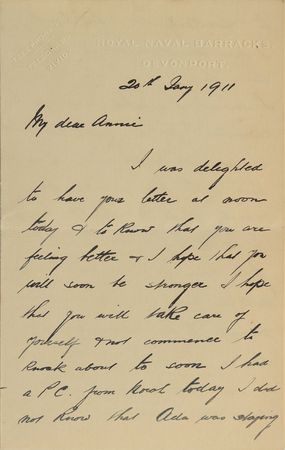 ROYAL NAVAL BARRACKS
DEVONPORT.
20th Jany 1911
My dear Annie
I was delighted
to have your letter at noon
today & to know that you are
feeling better & I hope that you
will soon be stronger I hope
that you will take care of
yourself & not commence to
knock about to soon I had
a P.C. from today I did
not know that Ada was staying